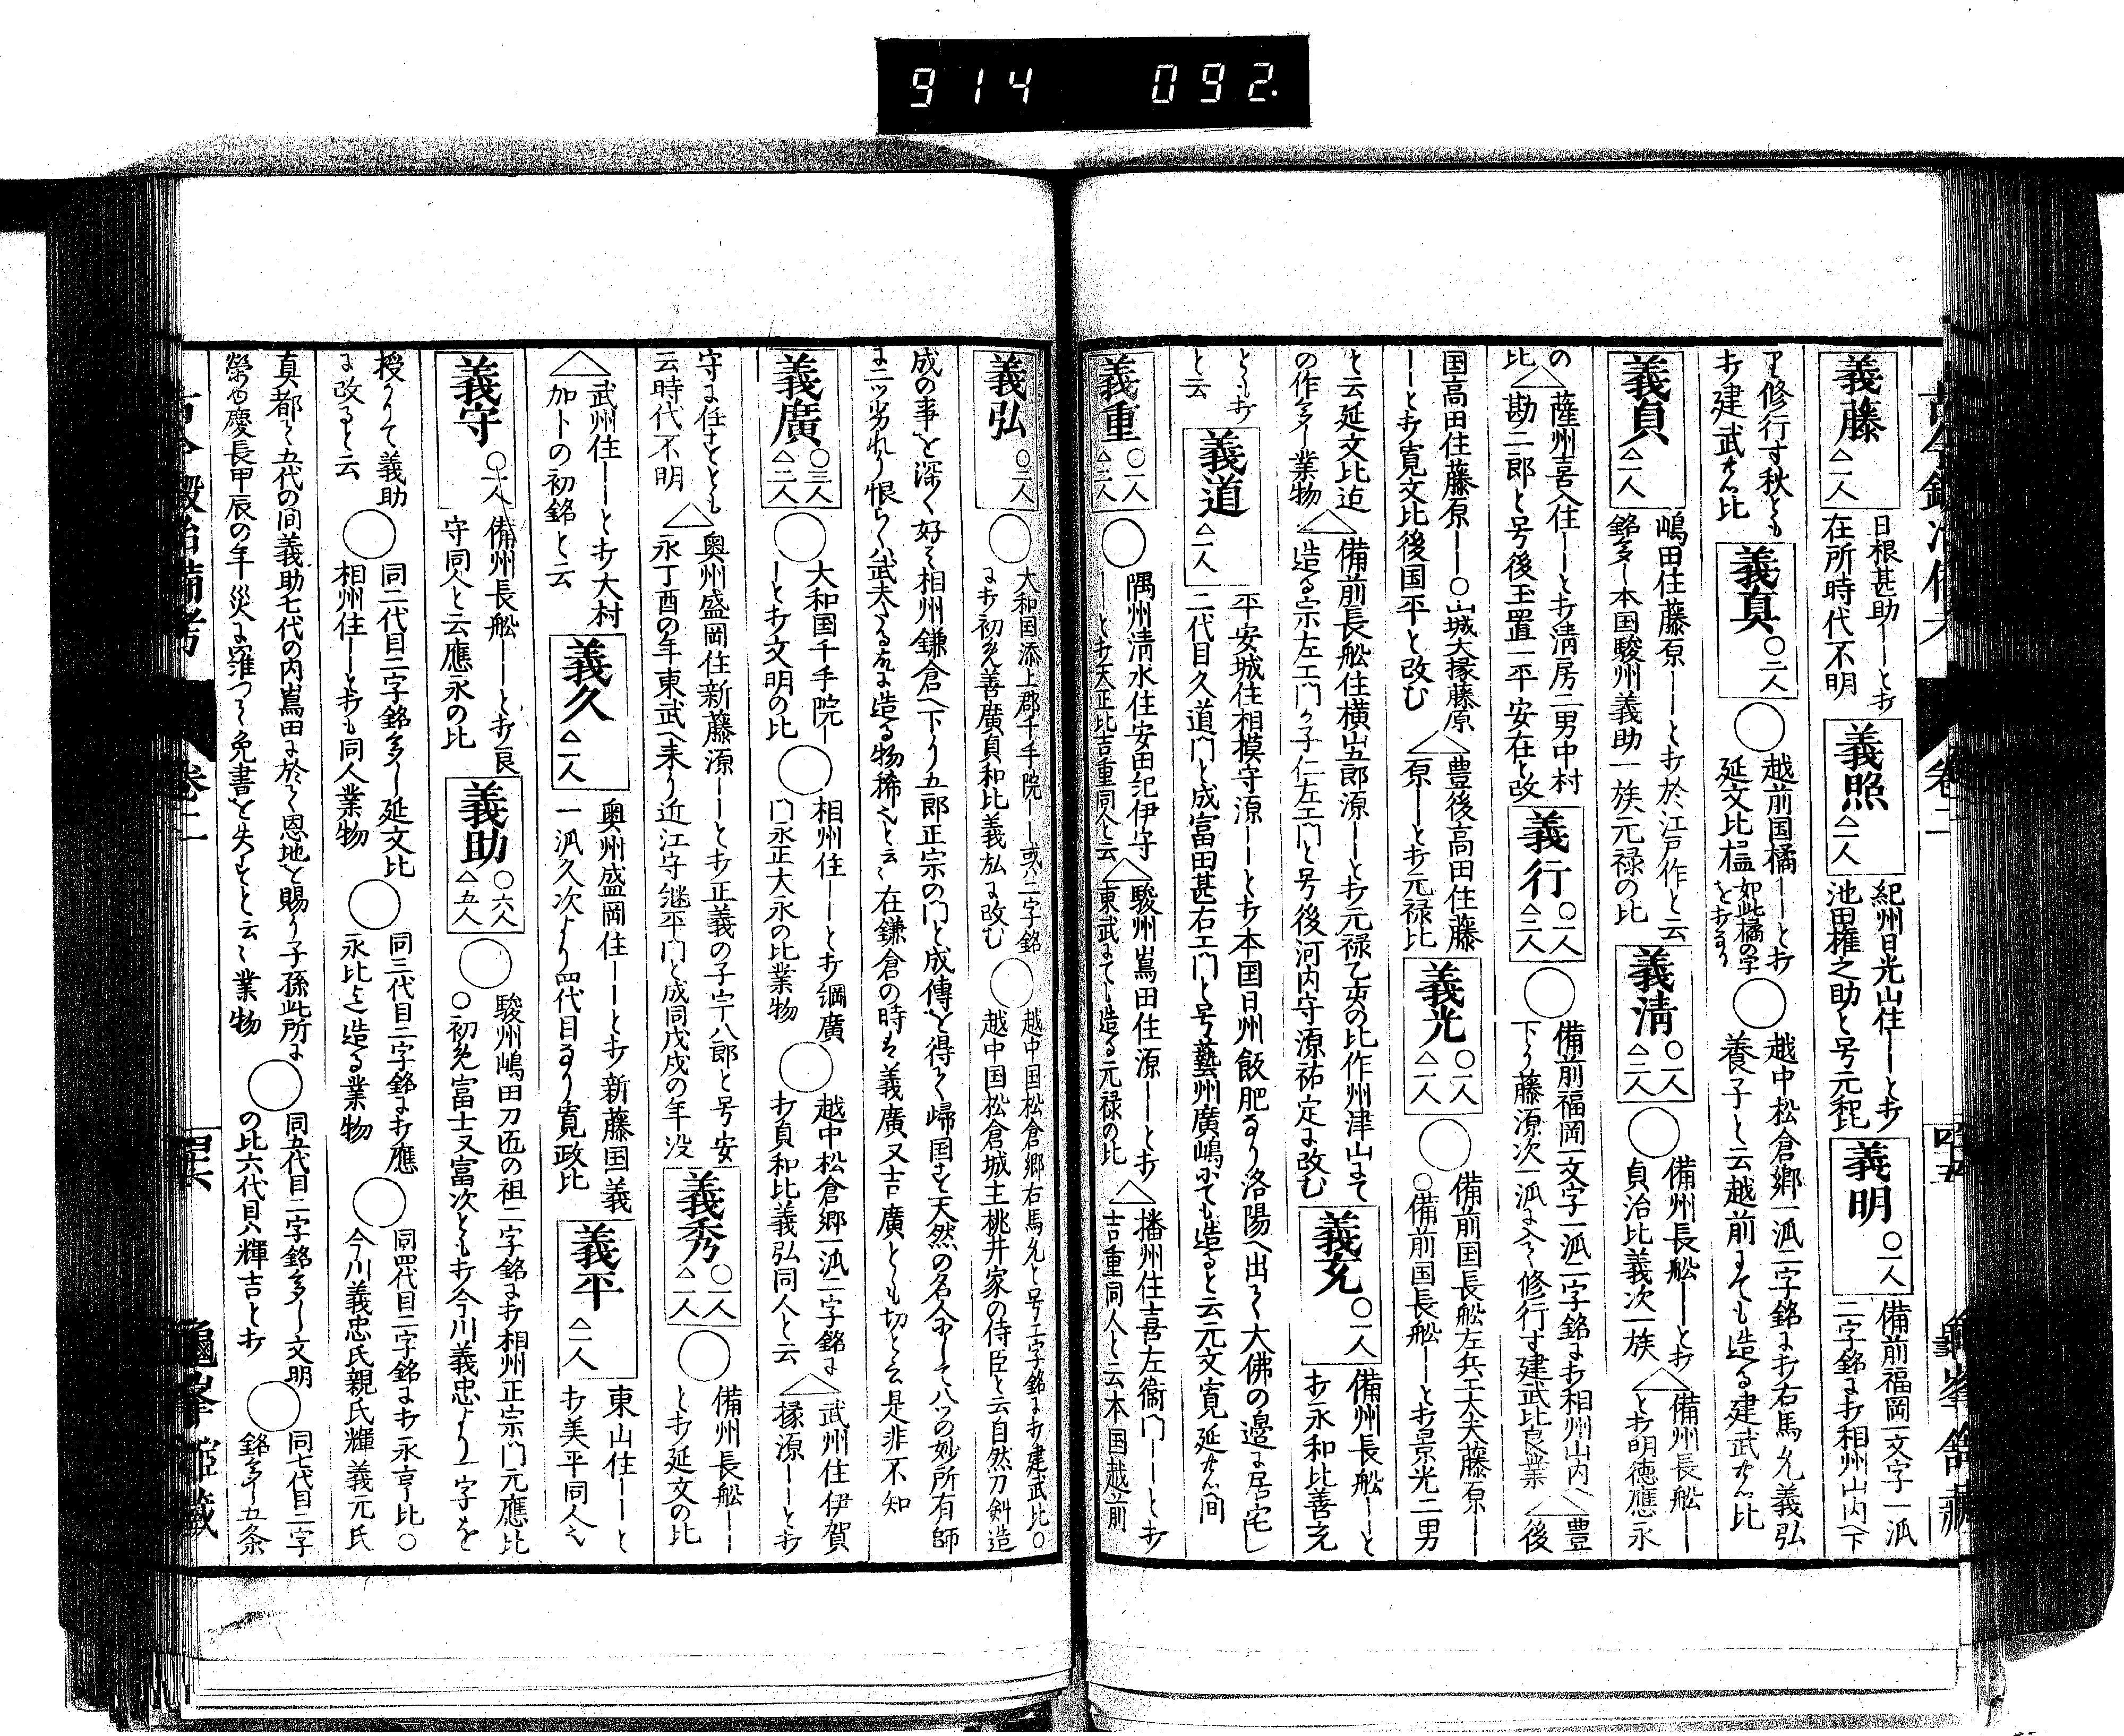 914 092.
義藤 △一人
日根甚助――と打
在所時代不明
義照 △一人
紀州日光山住――と打
池田権之助と号元
義明 〇一人
備前福岡一文字一派
二字銘に打相州山内へ下
り修行す秋とも
打建武比
義真 〇二人
〇越前国橘――と打
延文比 如此橘の字を打
〇越中松倉郷一派二字銘に打右馬允義弘
養子と云越前にても造る建武比
義貞 △一人
嶋田住藤原――と打於江戸作と云
銘多し本国駿州義助一族元禄の比
義清 〇一人 △二人
〇備州長舩――と打
貞治比義次一族
△備州長舩――
と打明徳應永
の比
△薩州喜入住――と打清房二男中村
勘二郎と号後玉置一平安在と改
義行 〇一人 △三人
〇備前福岡一文字一派二字銘に打相州山内へ
下り藤源次一派に会て修行す建武比良業
△豊後
国高田住藤原――〇山城大掾藤原
――と打寛文比後国平と改む
△豊後高田住藤
原――と打元禄比
義光 〇二人 △一人
〇備前国長舩左兵工大夫藤原――
〇備前国長舩――と打景光二男
と云延文比迠
の作多し業物
△備前長舩住横山五郎源――と打元禄乙亥の比作州津山にて
造る宗左工門の子仁左工門と号後河内守源祐定に改む
義充 〇一人
備州長舩――と
打永和比善充
とも打
と云
義道 △二人
平安城住相模守源――と打本国日州飯肥なり洛陽へ出て大佛の邊に居宅し
二代目久道門と成富田甚右工門と号藝州廣嶋にても造ると云元文寛延間
義重 〇一人 △三人
〇隅州清水住安田紀伊守
――と打天正比吉重同人と云
△駿州嶌田住源――と打
東武にても造る元禄の比
△播州住喜左衛門――と打
吉重同人と云本国越前
義弘 〇二人
〇大和国添上郡千手院――或二字銘
に打初え善廣貞和比義弘に改む
〇越中国松倉郷右馬允と号二字銘に打建武比〇
越中国松倉城主桃井家の侍臣と云自然刀剣造
成の事を深く好み相州鎌倉へ下り五郎正宗の門と成傳を得て帰国す天然の名人にして八ツの妙所有師
に二ツ劣れり恨らくハ武夫なる故に造る物稀也と云々在鎌倉の時は義廣又吉廣とも切と云是非不知
義廣 〇三人 △二人
〇大和国千手院――
――と打文明の比
〇相州住――と打綱廣
門永正大永の比業物
〇越中松倉郷一派二字銘に
打貞和比義弘同人と云
△武州住伊賀
掾源――と打
守に任さとも
云時代不明
△奥州盛岡住新藤源――と打正義の子宇八郎と号安
永丁酉の年東武へ来り近江守継平門と成同戊戌の年没
義秀 〇一人 △一人
〇備州長舩――
と打延文の比
△武州住――と打大村
加卜の初銘と云
義久 △一人
奥州盛岡住――と打新藤国義
一派久次より四代目なり寛政比
義平 △一人
東山住――と
打美平同人也
義守 〇一人
備州長舩――と打良
守同人と云應永の比
義助 〇六人 △五人
〇駿州嶋田刀匠の祖二字銘に打相州正宗門元應比
〇初え富士又富次とも打今川義忠より一字を
授りて義助
に改ると云
〇同二代目二字銘多し延文比
相州住――と打も同人業物
〇同三代目二字銘に打應
永比迠造る業物
〇同四代目二字銘に打永享比〇
今川義忠氏親氏輝義元氏
真都て五代の間義助七代の内嶌田に於て恩地を賜り子孫此所に
榮る慶長甲辰の年災に羅つて免書を失すと云々業物
〇同五代目二字銘多し文明
の比六代目ハ輝吉と打
〇同七代目二字
銘多し五条
古今鍛冶備考 巻二 四六